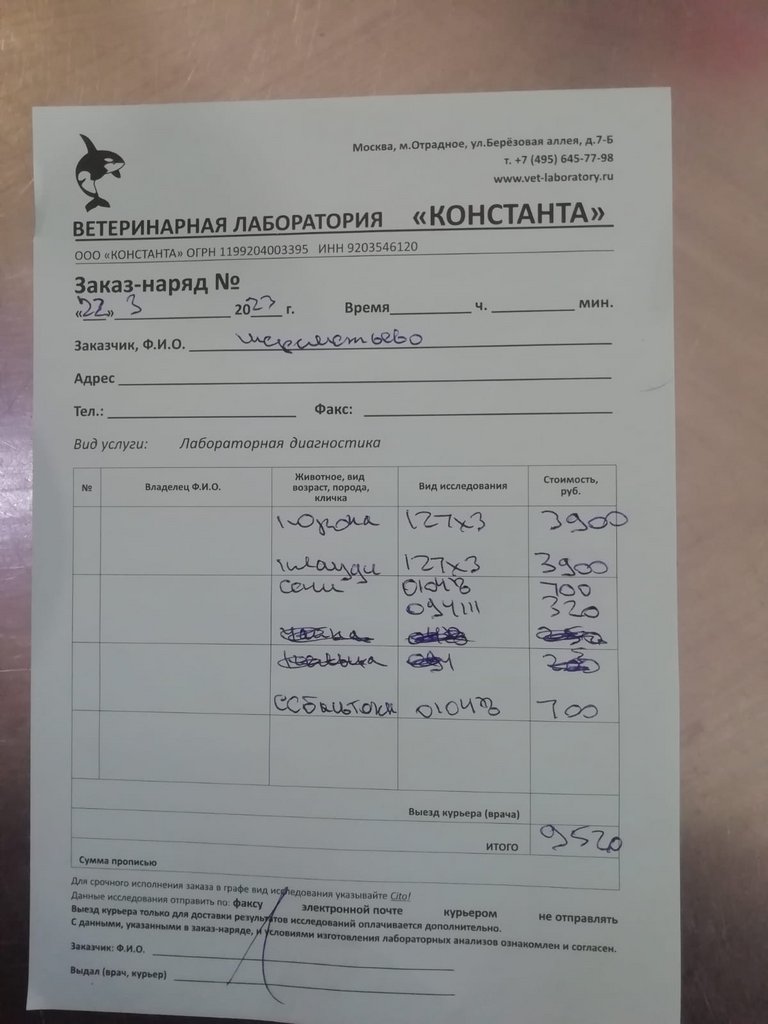 Москва, м.Отрадное, ул.Берёзовая аллея, д.7-Б
т. +7 (495) 645-77-98
www.vet-laboratory.ru
ВЕТЕРИНАРНАЯ ЛАБОРАТОРИЯ «КОНСТАНТА»
ООО «КОНСТАНТА» ОГРН 1199204003395 ИНН 9203546120
Заказ-наряд №
«22» 3 2023 г. Время ч. мин.
Заказчик, Ф.И.О. шереметьево
Адрес
Тел.: Факс:
Вид услуги: Лабораторная диагностика
№ Владелец Ф.И.О. Животное, вид возраст, порода, кличка Вид исследования Стоимость, руб.
127х3 3900
127х3 3900
700
320
700
Выезд курьера (врача)
ИТОГО 9520
Сумма прописью
Для срочного исполнения заказа в графе вид исследования указывайте Cito!
Данные исследования отправить по: факсу электронной почте курьером не отправлять
Выезд курьера только для доставки результатов исследований оплачивается дополнительно.
С данными, указанными в заказ-наряде, и условиями изготовления лабораторных анализов ознакомлен и согласен.
Заказчик: Ф.И.О.
Выдал (врач, курьер)